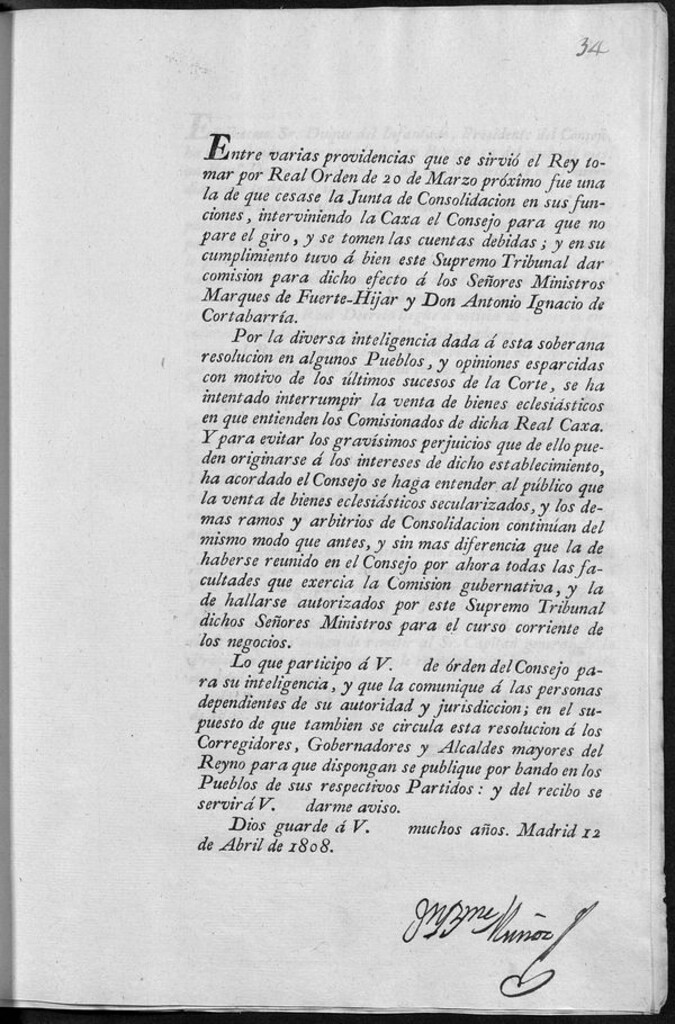 34
Entre varias providencias que se sirvió el Rey to-
mar por Real Orden de 20 de Marzo próximo fue una
la de que cesase la Junta de Consolidacion en sus fun-
ciones, interviniendo la Caxa el Consejo para que no
pare el giro, y se tomen las cuentas debidas; y en su
cumplimiento tuvo á bien este Supremo Tribunal dar
comision para dicho efecto á los Señores Ministros
Marques de Fuerte-Hijar y Don Antonio Ignacio de
Cortabarría.
Por la diversa inteligencia dada á esta soberana
resolucion en algunos Pueblos, y opiniones esparcidas
con motivo de los últimos sucesos de la Corte, se ha
intentado interrumpir la venta de bienes eclesiásticos
en que entienden los Comisionados de dicha Real Caxa.
Y para evitar los gravísimos perjuicios que de ello pue-
den originarse á los intereses de dicho establecimiento,
ha acordado el Consejo se haga entender al público que
la venta de bienes eclesiásticos secularizados, y los de-
mas ramos y arbitrios de Consolidacion continúan del
mismo modo que antes, y sin mas diferencia que la de
haberse reunido en el Consejo por ahora todas las fa-
cultades que exercia la Comision gubernativa, y la
de hallarse autorizados por este Supremo Tribunal
dichos Señores Ministros para el curso corriente de
los negocios.
Lo que participo á V. de órden del Consejo pa-
ra su inteligencia, y que la comunique á las personas
dependientes de su autoridad y jurisdiccion; en el su-
puesto de que tambien se circula esta resolucion á los
Corregidores, Gobernadores y Alcaldes mayores del
Reyno para que dispongan se publique por bando en los
Pueblos de sus respectivos Partidos: y del recibo se
servirá V. darme aviso.
Dios guarde á V. muchos años. Madrid 12
de Abril de 1808.
Muñoz